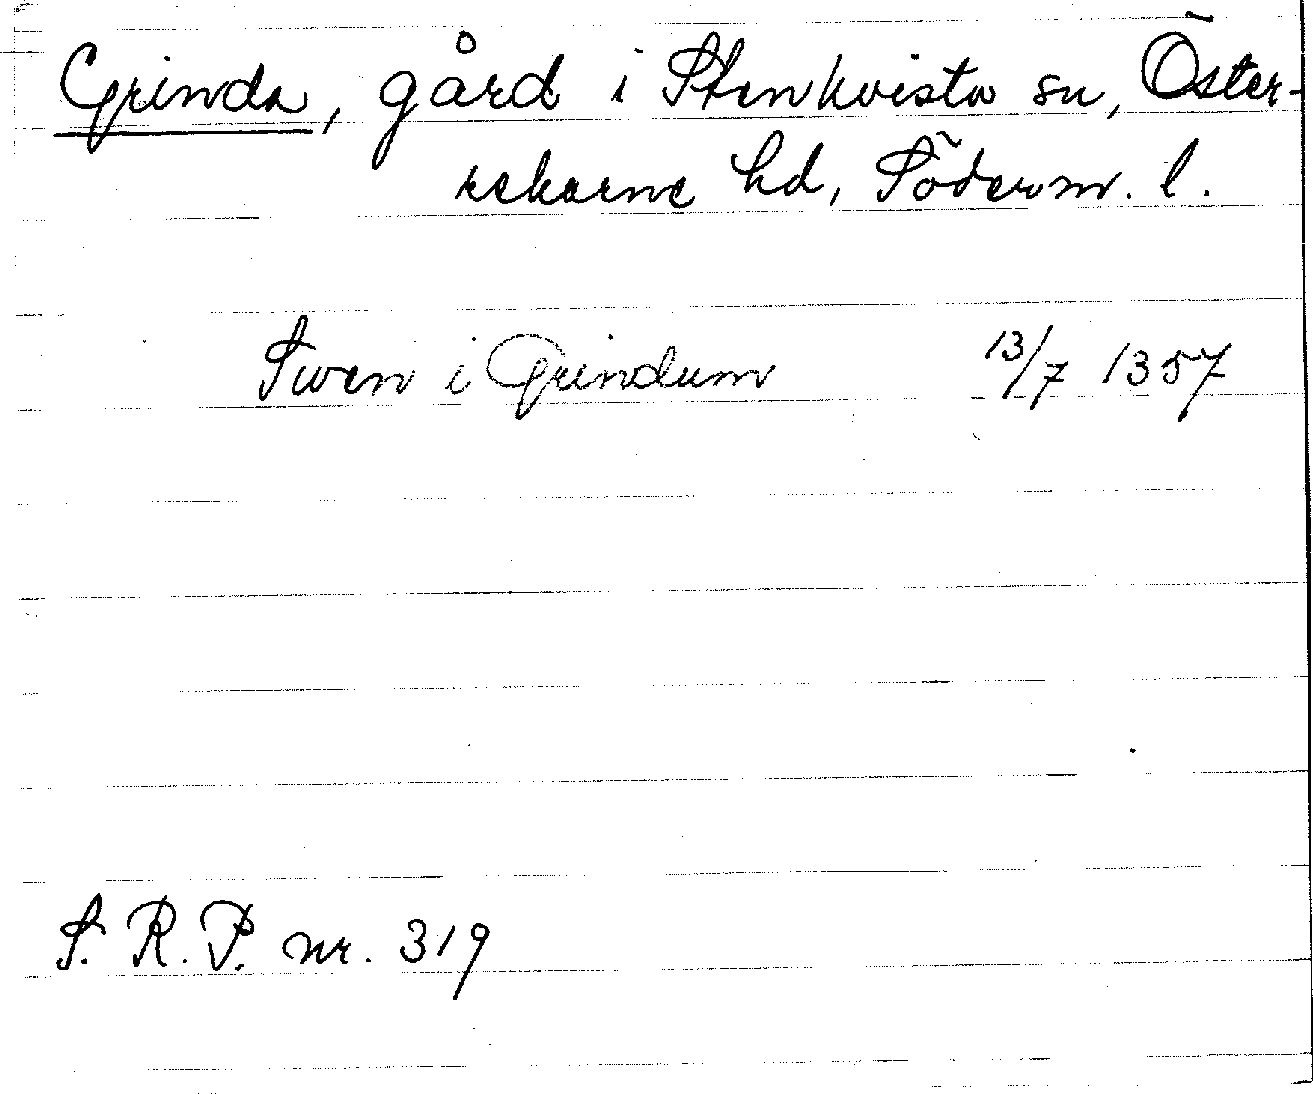 Grinda, gård i Stenkvista sn, Öster-
rekarne hd, Söderm. l.
Swen i Grindum 13/7 1357
S. R. P. nr. 319